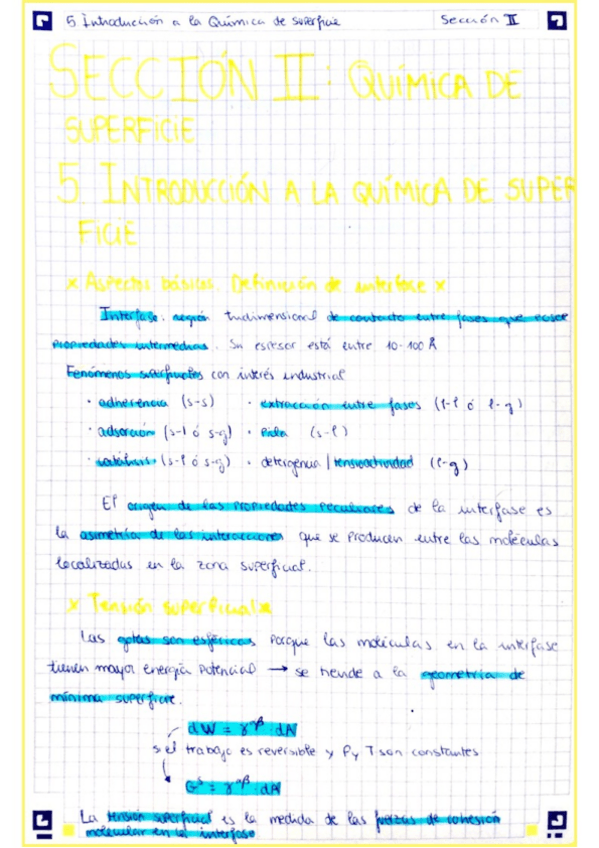 5 Introducción a la Química de superficie Sección II
SECCIÓN II: QUÍMICA DE
SUPERFICIE
5. INTRODUCCIÓN A LA QUÍMICA DE SUPER
FICIE
x Aspectos básicos. Definición de interfase x
Interfase: región tridimensional de contacto entre fases que posee
propiedades intermedias. Su espesor está entre 10-100 Å
Fenómenos superficiales con interés industrial
· adherencia (s-s) · extracción entre fases (l-l ó l-g)
· adsorción (s-l ó s-g) · Pila (s-l)
· catálisis (s-l ó s-g) · detergencia / tensioactividad (l-g)
El origen de las propiedades peculiares de la interfase es
la asimetría de las interacciones que se producen entre las moléculas
localizadas en la zona superficial.
x Tensión superficial x
Las gotas son esféricas porque las moléculas en la interfase
tienen mayor energía potencial → se tiende a la geometría de
mínima superficie.
dW = γ^αβ · dA
si el trabajo es reversible y P y T son constantes
G^S = γ^αβ · dA
La tensión superficial es la medida de las fuerzas de cohesión
molecular en la interfase